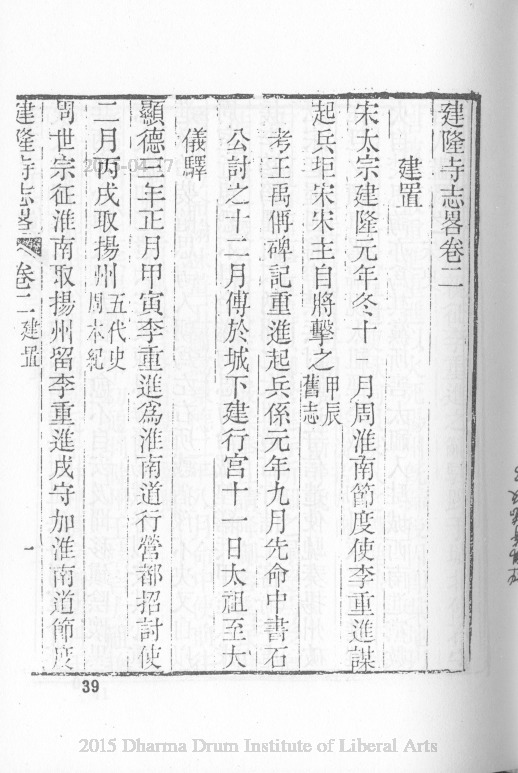 建隆寺志畧卷二
建置
宋太宗建隆元年冬十一月周淮南節度使李重進謀
起兵拒宋宋主自將擊之甲辰舊志
考王禹偁碑記重進起兵係元年九月先命中書石
公討之十二月傅於城下建行宮十一日太祖至大
儀驛
顯德三年正月甲寅李重進爲淮南道行營都招討使
二月丙戌取揚州五代史周本紀
周世宗征淮南取揚州留李重進戍守加淮南道節度
建隆寺志畧 卷二 建置 一
39
2015 Dharma Drum Institute of Liberal Arts